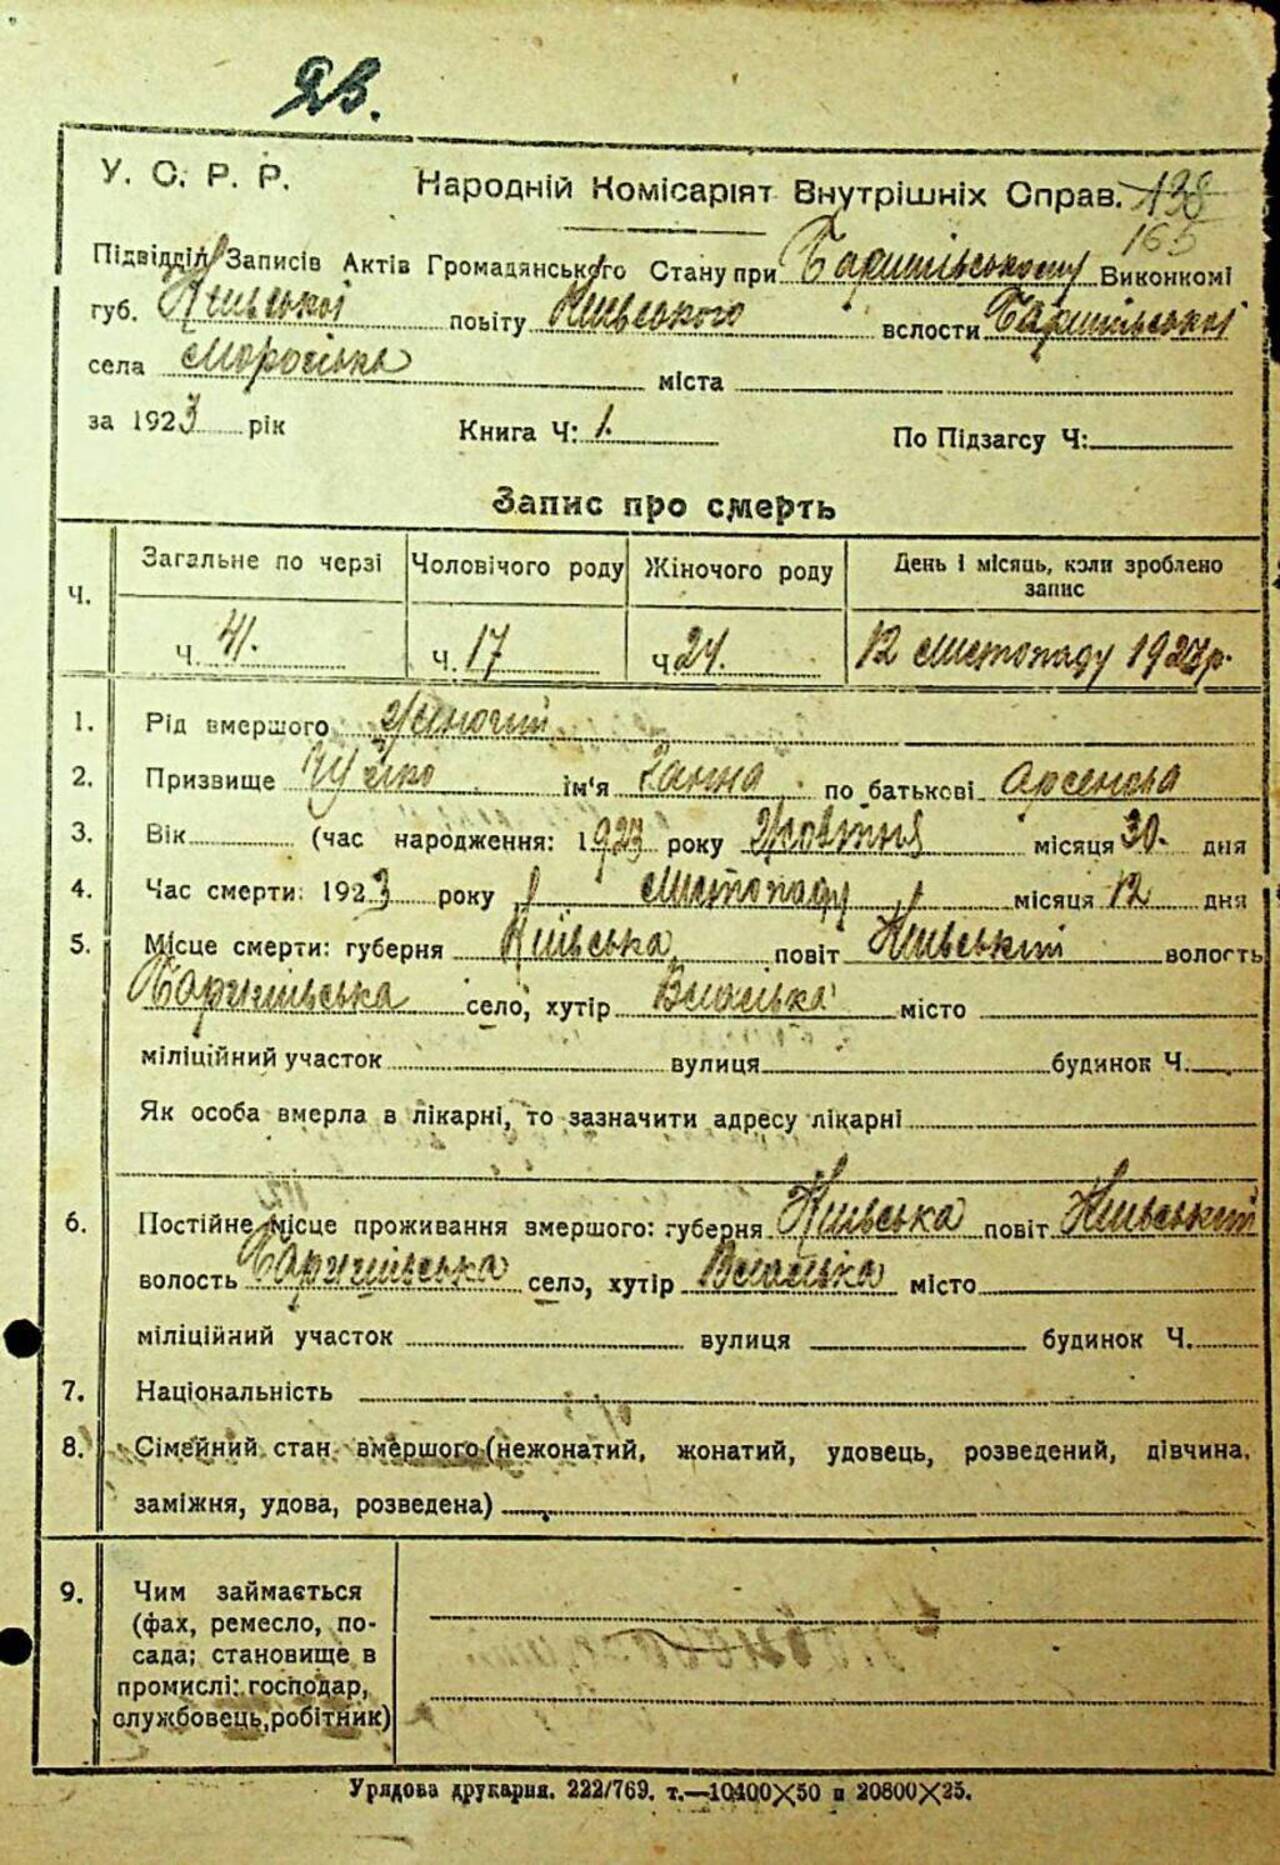 У. С. Р. Р. Народній Комісаріят Внутрішніх Справ. 138
165
Підвідділ Записів Актів Громадянського Стану при Баришівському Виконкомі
губ. Київської повіту Київського волости Баришівської
села Морозівка міста
за 1923 рік Книга Ч: 1. По Підзагсу Ч:
Запис про смерть
Ч. Загальне по черзі Чоловічого роду Жіночого роду День і місяць, коли зроблено запис
Ч. 41. Ч. 17 Ч 24. 12 Листопаду 1923 р.
1. Рід вмершого Жіночий
2. Призвище ім'я Ганна по батькові Арсенова
3. Вік (час народження: 1923 року Жовтня місяця 30. дня
4. Час смерти: 1923 року Листопаду місяця 12 дня
5. Місце смерти: губерня Київська повіт Київський волость
Баришівська село, хутір місто
міліційний участок вулиця будинок Ч.
Як особа вмерла в лікарні, то зазначити адресу лікарні
6. Постійне місце проживання вмершого: губерня Київська повіт Київський
волость Баришівська село, хутір місто
міліційний участок вулиця будинок Ч.
7. Національність
8. Сімейний стан вмершого (нежонатий, жонатий, удовець, розведений, дівчина,
заміжня, удова, розведена)
9. Чим займається
(фах, ремесло, по-
сада; становище в
промислі: господар,
службовець, робітник)
Урядова друкарня. 222/769. т.—10400×50 и 20800×25.